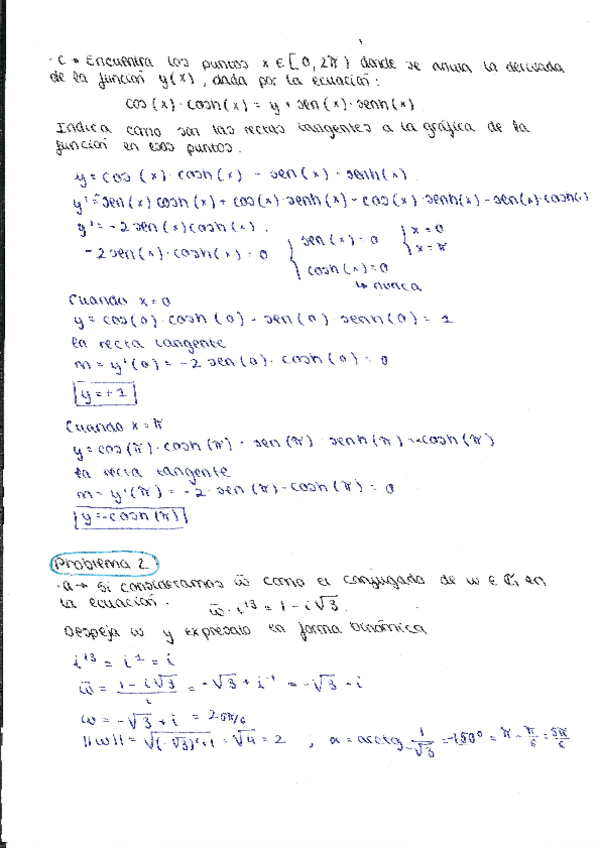 ·c → Encuentra los puntos x ∈ [0, 2π) donde se anula la derivada
de la funcion y(x), dada por la ecuacion:
cos(x)·cosh(x) = y + sen(x)·senh(x)
Indica como son las rectas tangentes a la gráfica de la
funcion en esos puntos.
y = cos(x)·cosh(x) - sen(x)·senh(x)
y' = -sen(x)cosh(x) + cos(x)·senh(x) - cos(x)·senh(x) - sen(x)·cosh(x)
y' = -2sen(x)cosh(x).
-2sen(x)·cosh(x) = 0 { sen(x) = 0 { x = 0
x = π
cosh(x) = 0
↳ nunca
Cuando x = 0
y = cos(0)·cosh(0) - sen(0)·senh(0) = 1
la recta tangente
m = y'(0) = -2sen(0)·cosh(0) = 0
y = +1
Cuando x = π
y = cos(π)·cosh(π) - sen(π)·senh(π) = -cosh(π)
la recta tangente
m = y'(π) = -2·sen(π)·cosh(π) = 0
y = -cosh(π)
Problema 2
·a → Si consideramos w̄ como el conjugado de w ∈ ℂ, en
la ecuacion. w̄·i¹³ = 1 - i√3.
Despeja w y expresalo en forma binómica
i¹³ = i¹ = i
w̄ = (1 - i√3)/i = -√3 + i⁻¹ = -√3 - i
w = -√3 + i = 2 5π/6
||w|| = √((-√3)²+1) = √4 = 2 ; α = arctg 1/-√3 = -150° = π - π/6 = 5π/6